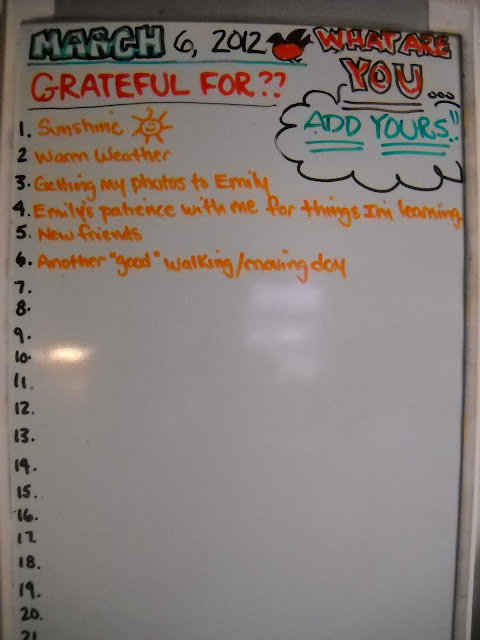 MARCH 6, 2012 WHAT ARE
GRATEFUL FOR?? YOU...
ADD YOURS!!
1. Sunshine
2 Warm Weather
3. Getting my photos to Emily
4. Emily's patience with me for things I'm learning
5. New friends
6. Another "good" walking/moving day
7.
8.
9.
10.
11.
12.
13.
14.
15.
16.
17.
18.
19.
20.
21